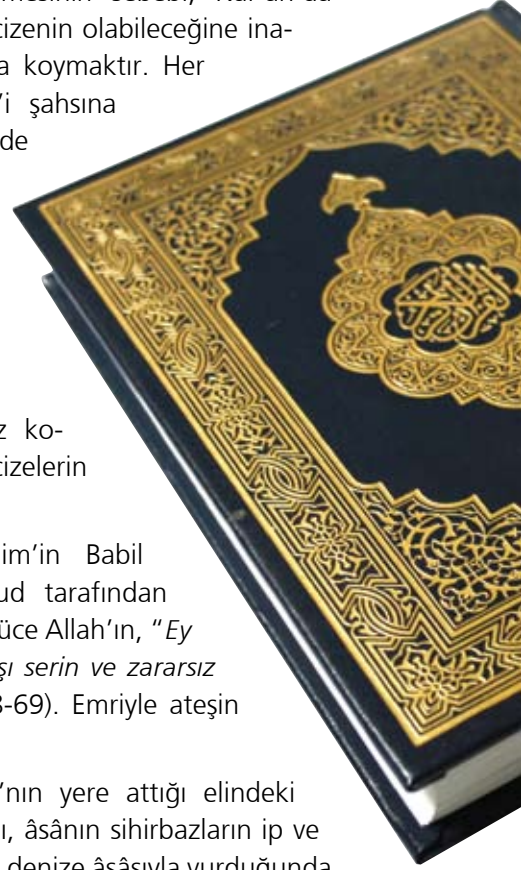 cizenin olabileceğine ina-
a koymaktır. Her
'i şahsına
de
z ko-
cizelerin
im'in Babil
ud tarafından
üce Allah'ın, "Ey
şı serin ve zararsız
8-69). Emriyle ateşin
'nın yere attığı elindeki
ı, âsânın sihirbazların ip ve
denize âsâsıyla vurduğunda